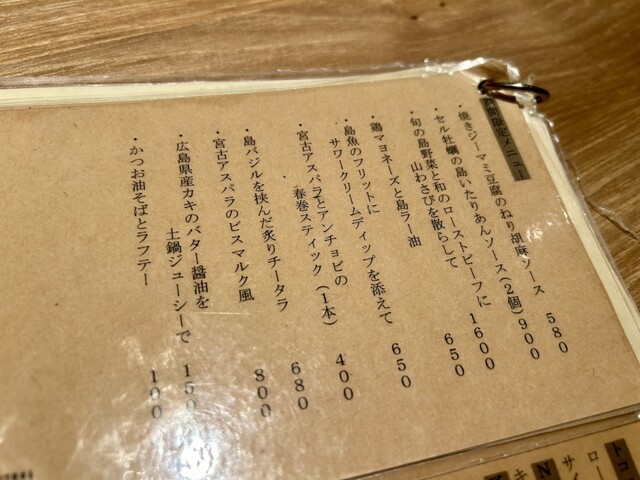 間限定メニュー
・焼きジーマミ豆腐のねり胡麻ソース 580
・セル牡蠣の島いたりあんソース(2個) 900
・旬の島野菜と和のローストビーフに
山わさびを散らして 1600
・鶏マヨネーズと島ラー油 650
・島魚のフリットに
サワークリームディップを添えて 650
・宮古アスパラとアンチョビの
春巻スティック(1本) 400
・島バジルを挟んだ炙りチータラ 680
・宮古アスパラのビスマルク風 800
・広島県産カキのバター醤油を
土鍋ジューシーで 150
・かつお油そばとラフテー 100